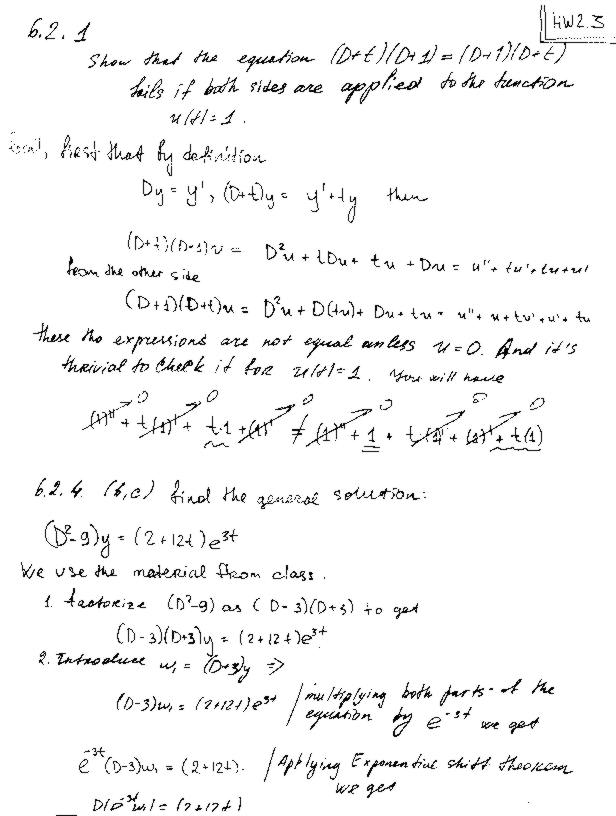 HW2.3
6.2.1
Show that the equation (D+t)(D+1) = (D+1)(D+t)
fails if both sides are applied to the function
u(t)=1.
first that by definition
Dy = y', (D+t)y = y'+ty then
(D+t)(D+1)u = D²u + tDu + tu + Du = u''+ tu'+tu+u'
from the other side
(D+1)(D+t)u = D²u + D(tu)+ Du + tu = u''+ u+tu'+u'+ tu
these two expressions are not equal unless u=0. And it's
thrivial to check it for u(t)=1. You will have
0 0 0 0 0 0
(1)''+ t(1)'+ t·1 +(1)' ≠ (1)''+ 1 + t(1)' + (1)'+ t(1)
6.2.4 (b,c) find the general solution:
(D²-9)y = (2+12t)e³ᵗ
We use the material from class.
1. factorize (D²-9) as (D-3)(D+3) to get
(D-3)(D+3)y = (2+12t)e³ᵗ
2. Introduce w₁ = (D+3)y ⇒
(D-3)w₁ = (2+12t)e³ᵗ / multiplying both parts of the
equation by e⁻³ᵗ we get
e⁻³ᵗ(D-3)w₁ = (2+12t). / Applying Exponential shift theorem
we get
D(e⁻³ᵗw₁) = (2+12t)